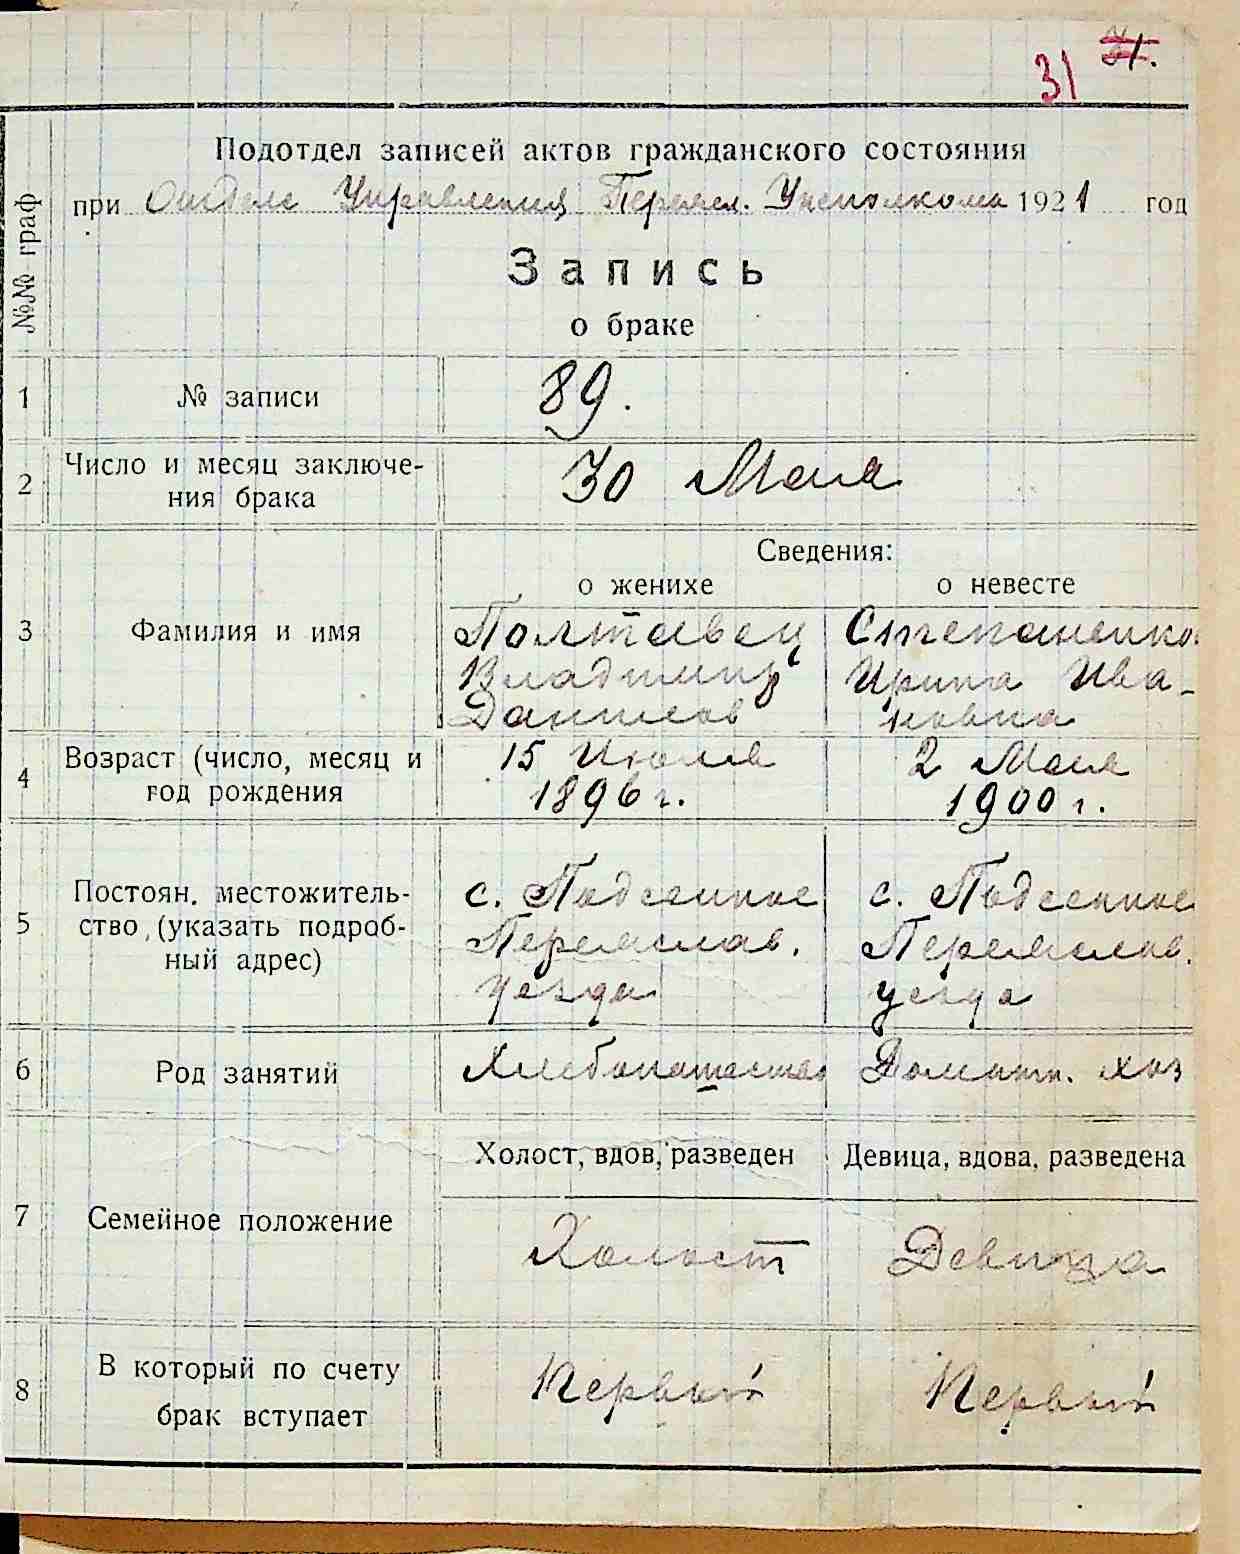 31 31.
Подотдел записей актов гражданского состояния
при Отделе Управления Переясл. Уисполкома 1921 год
№№ граф
Запись
о браке
1 № записи 89.
2 Число и месяц заключе-
ния брака 30 Мая
Сведения:
о женихе о невесте
3 Фамилия и имя Полтавец Степаненко
Владимир Ирина Ива-
Данилов новна
4 Возраст (число, месяц и 15 Июля 2 Мая
год рождения 1896 г. 1900 г.
5 Постоян. местожитель- с. Подсенное с. Подсенное
ство, (указать подроб- Переяслав. Переяслав.
ный адрес) уезда уезда
6 Род занятий Хлебопашество Домашн. хоз
Холост, вдов, разведен Девица, вдова, разведена
7 Семейное положение Холост Девица
8 В который по счету Первый Первый
брак вступает